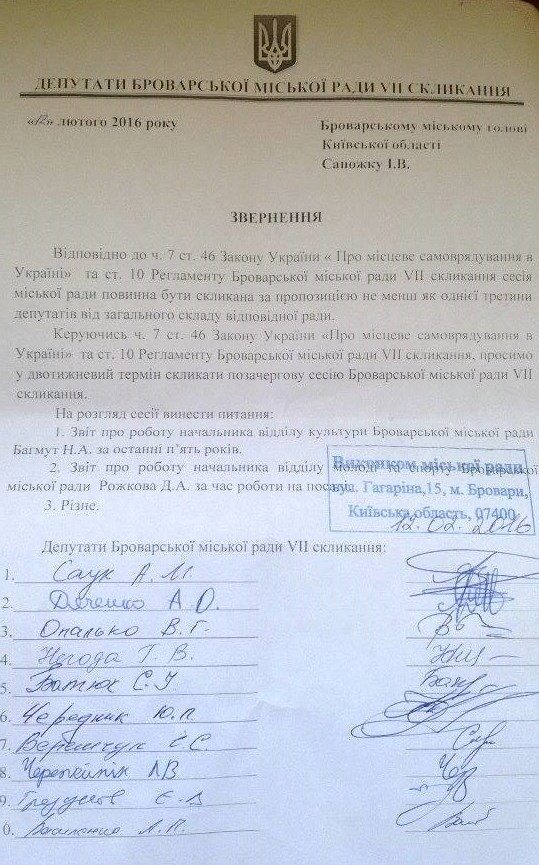 ДЕПУТАТИ БРОВАРСЬКОЇ МІСЬКОЇ РАДИ VII СКЛИКАННЯ
«12» лютого 2016 року
Броварському міському голові
Київської області
Сапожку І.В.
ЗВЕРНЕННЯ
Відповідно до ч. 7 ст. 46 Закону України « Про місцеве самоврядування в
Україні» та ст. 10 Регламенту Броварської міської ради VII скликання сесія
міської ради повинна бути скликана за пропозицією не менш як однієї третини
депутатів від загального складу відповідної ради.
Керуючись ч. 7 ст. 46 Закону України «Про місцеве самоврядування в
Україні» та ст. 10 Регламенту Броварської міської ради VII скликання, просимо
у двотижневий термін скликати позачергову сесію Броварської міської ради VII
скликання.
На розгляд сесії винести питання:
1. Звіт про роботу начальника відділу культури Броварської міської ради
Багмут Н.А. за останні п'ять років.
2. Звіт про роботу начальника відділу молоді та спорту Броварської
міської ради Рожкова Д.А. за час роботи на посаді.
3. Різне.
Виконком міської ради
вул. Гагаріна,15, м. Бровари,
Київська область, 07400
12.02.2016
Депутати Броварської міської ради VII скликання:
1. Саук А. М.
2. А. О.
3. Опалько В. Г.
4. Негода Т. В.
5. Батюк С. У
6. Чередник Ю. П.
7. Є. С.
8. Л В
9. Є. В
0. Василенко Л. П.